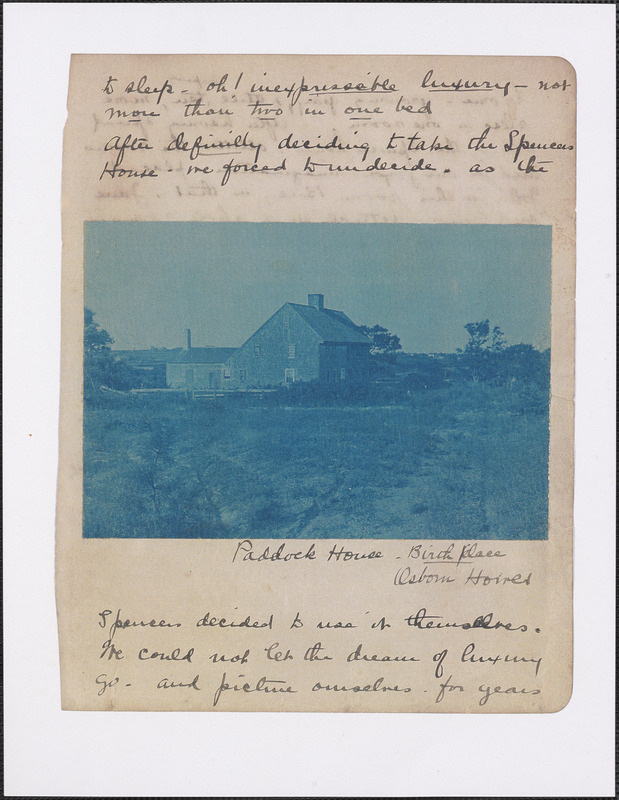 to sleep - oh! inexpressible luxury - not
more than two in one bed
After definitly deciding to take the Spencers
House - we forced to undecide. as the
Paddock House - Birth place
Osborn
Spencers decided to use it themselves.
We could not let the dream of luxury
go - and picture ourselves - for years